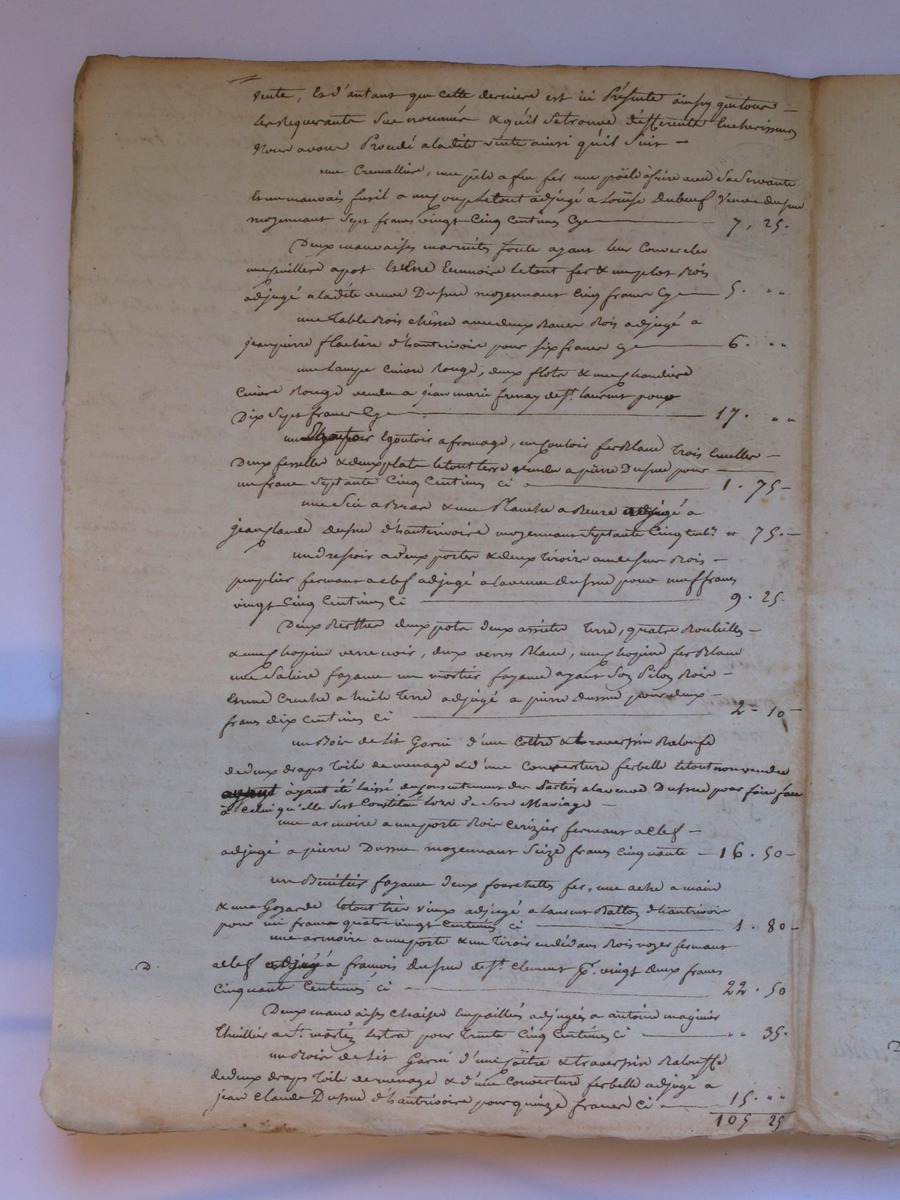 vente, Et d'autant que cette derniere est ici Présente ainsy que tous
les Requerants sus nommés & qu'il se trouve différents Encherisseurs
Nous avons Procedé a la dite vente ainsi qu'il suit —
une Cremallière, une pèle a feu fer une poële à frire avec sa Servante
Et un mauvais fusil a le tout adjugé a Louise Dubeuf Veuve Dusne
moyennant Sept francs vingt Cinq Centimes Cy — 7, 25.
Deux mauvaises marmites fonte ayant leur Couvercles
une Cuillere a pot Et une Ecumoire le tout fer & un plat Bois
adjugé a la dite veuve Dusne moyennant Cinq francs Cy — 5. " "
une Table Bois chêne avec deux Bancs Bois adjugé a
jean pierre flachère d'hauterivoire pour six francs cy — 6. " "
une Lampe Cuivre Rouge, deux & une Chaudiere
Cuivre Rouge vendu a jean marie frenay de St. laurent pour
Dix Sept francs Cy — 17. " "
un Egoutoir a fromage, un Couloir fer Blanc trois Ecuelles —
Deux fesselles & deux plats le tout terre vendu a pierre Dusne pour —
un franc Septante Cinq Centimes Ci — 1. 75 —
une Scie a Bras & une Planche a Beure adjugé a
jean Claude Dusne d'hauterivoire moyennant Septante Cinq Cent. " 75. —
un dressoir a deux portes & deux tiroirs au dessus Bois —
peuplier fermant a clef adjugé a la veuve Dusne pour neuf francs
vingt Cinq Centimes Ci — 9. 25.
Deux deux pots deux assiettes terre, quatre Bouteilles —
& une chopine verre noir, deux verres Blanc, une chopine fer Blanc
une Saliere fayance un mortier fayance ayant Son Pilon Bois —
Et une Cruche a huile terre adjugé a pierre dusne pour deux —
francs dix Centimes Ci — 2 = 10 —
un Bois de Lit Garni d'une & traversin Balouffe
de deux draps toile de menage & d'une Couverture ferbelle le tout non vendu
ayant été laissé du Consentement des Parties a la veuve Dusne pour faire face
à Celui qu'elle S'est Constitué lors de Son Mariage —
une armoire a une porte Bois Cerizier fermant a Clef —
adjugé a pierre Dusne moyennant Seize francs Cinquante — 16. 50 —
un Benitier fayance deux fourchettes fer, une ache a main
& une Gozarde le tout très vieux adjugé a Laurent Batton d'hauterivoir
pour un franc quatre vingt Centimes ci — 1. 80 —
une armoire a une porte & un tiroir en dedans Bois noyer fermant
D.
a Clef adjugé a francois Dusne de St. Clement pr. vingt deux francs
Cinquante Centimes Ci — 22. 50
Deux mauvaises Chaises Empaillés adjugés a antoine
a St. pour trente Cinq Centimes Ci — " " 35.
un Bois de Lit Garni d'une & traversin Balouffe
de deux draps toile de menage & d'une Couverture ferbelle adjugé a
jean Claude Dusne d'hauterivoire pour quinze francs Ci — 15. " "
105 25